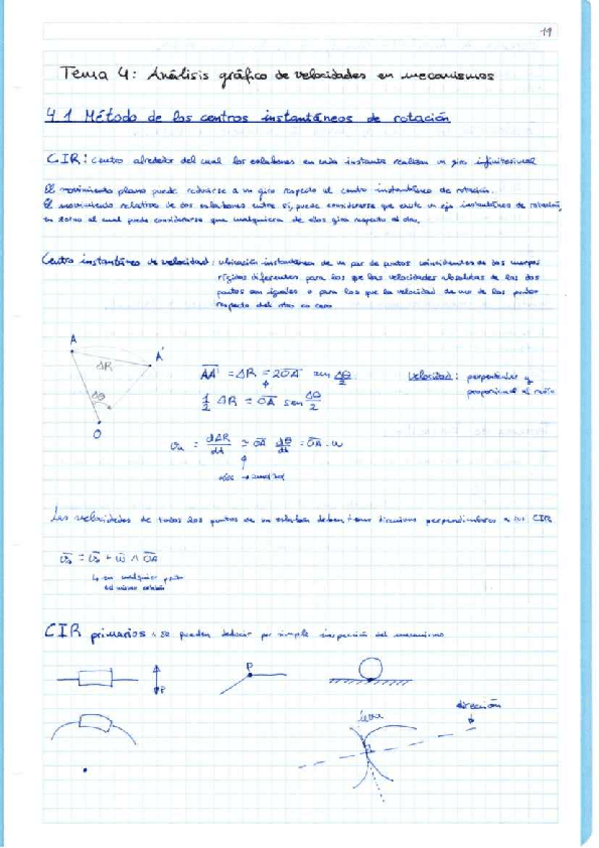 19
Tema 4: Análisis gráfico de velocidades en mecanismos
4.1 Método de los centros instantáneos de rotación
CIR: Centro alrededor del cual los eslabones en cada instante realizan un giro infinitesimal
El movimiento plano puede reducirse a un giro respecto al centro instantáneo de rotación.
El movimiento relativo de dos eslabones entre sí, puede considerarse que existe un eje instantáneo de rotación,
en torno al cual puede considerarse que cualquiera de ellos gira respecto al otro.
Centro instantáneo de velocidad: ubicación instantánea de un par de puntos coincidentes de dos cuerpos
rígidos diferentes para los que las velocidades absolutas de los dos
puntos son iguales o para los que la velocidad de uno de los puntos
respecto del otro es cero
A
A'
ΔR
Δθ
O
AA' = ΔR = 2 OA sen Δθ/2
1/2 ΔR = OA sen Δθ/2
Velocidad: perpendicular y
proporcional al radio
= dΔR/dt = OA dθ/dt = OA · ω
Las velocidades de todos los puntos de un eslabón deben tener direcciones perpendiculares a su CIR
+ ω ∧ OA
cualquier punto
del mismo eslabón
CIR primarios: se pueden deducir por simple inspección del mecanismo
P
P
leva
dirección